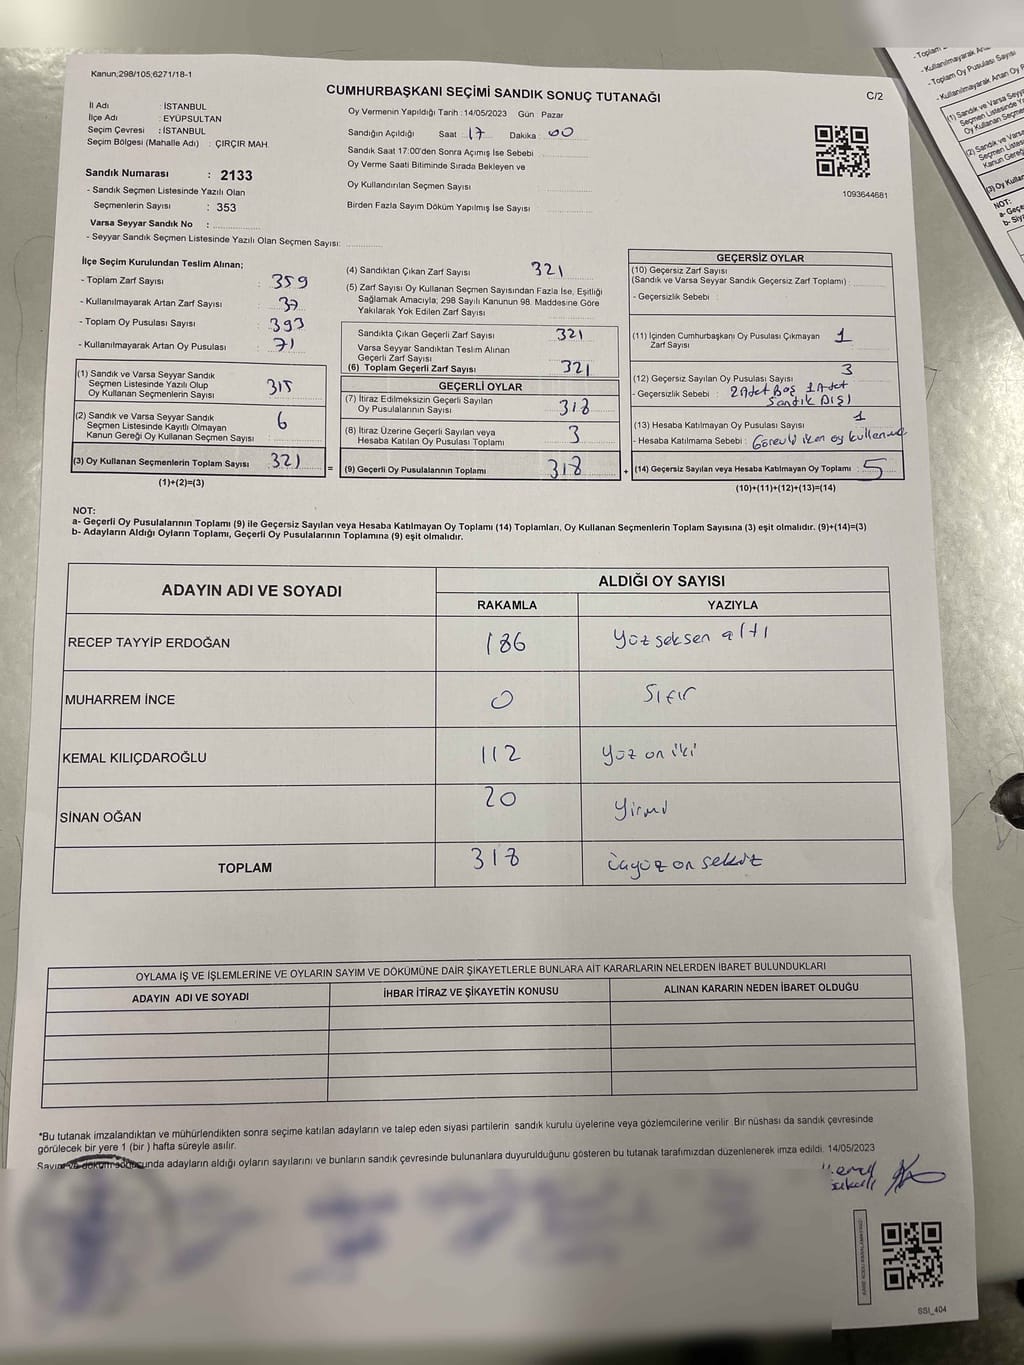 Kanun,298/105;6271/18-1
CUMHURBAŞKANI SEÇİMİ SANDIK SONUÇ TUTANAĞI
C/2
İl Adı : İSTANBUL
İlçe Adı : EYÜPSULTAN
Seçim Çevresi : İSTANBUL
Seçim Bölgesi (Mahalle Adı) : ÇIRÇIR MAH.
Sandık Numarası : 2133
- Sandık Seçmen Listesinde Yazılı Olan
Seçmenlerin Sayısı : 353
Varsa Seyyar Sandık No :
- Seyyar Sandık Seçmen Listesinde Yazılı Olan Seçmen Sayısı:
Oy Vermenin Yapıldığı Tarih : 14/05/2023 Gün : Pazar
Sandığın Açıldığı Saat : 17 Dakika : 00
Sandık Saat 17:00'den Sonra Açımış İse Sebebi :
Oy Verme Saati Bitiminde Sırada Bekleyen ve
Oy Kullandırılan Seçmen Sayısı :
Birden Fazla Sayım Döküm Yapılmış İse Sayısı :
1093644681
İlçe Seçim Kurulundan Teslim Alınan;
- Toplam Zarf Sayısı : 359
- Kullanılmayarak Artan Zarf Sayısı : 37
- Toplam Oy Pusulası Sayısı : 393
- Kullanılmayarak Artan Oy Pusulası : 71
(1) Sandık ve Varsa Seyyar Sandık
Seçmen Listesinde Yazılı Olup
Oy Kullanan Seçmenlerin Sayısı : 315
(2) Sandık ve Varsa Seyyar Sandık
Seçmen Listesinde Kayıtlı Olmayan
Kanun Gereği Oy Kullanan Seçmen Sayısı : 6
(3) Oy Kullanan Seçmenlerin Toplam Sayısı : 321
(1)+(2)=(3)
=
(4) Sandıktan Çıkan Zarf Sayısı : 321
(5) Zarf Sayısı Oy Kullanan Seçmen Sayısından Fazla İse, Eşitliği
Sağlamak Amacıyla; 298 Sayılı Kanunun 98. Maddesine Göre
Yakılarak Yok Edilen Zarf Sayısı :
Sandıkta Çıkan Geçerli Zarf Sayısı : 321
Varsa Seyyar Sandıktan Teslim Alınan
Geçerli Zarf Sayısı :
(6) Toplam Geçerli Zarf Sayısı : 321
GEÇERLİ OYLAR
(7) İtiraz Edilmeksizin Geçerli Sayılan
Oy Pusulalarının Sayısı : 318
(8) İtiraz Üzerine Geçerli Sayılan veya
Hesaba Katılan Oy Pusulası Toplamı : 3
(9) Geçerli Oy Pusulalarının Toplamı : 318
+
GEÇERSİZ OYLAR
(10) Geçersiz Zarf Sayısı
(Sandık ve Varsa Seyyar Sandık Geçersiz Zarf Toplamı) :
- Geçersizlik Sebebi :
(11) İçinden Cumhurbaşkanı Oy Pusulası Çıkmayan
Zarf Sayısı : 1
(12) Geçersiz Sayılan Oy Pusulası Sayısı : 3
- Geçersizlik Sebebi : 2 Adet Boş 1 Adet
Sandık Dışı
(13) Hesaba Katılmayan Oy Pusulası Sayısı : 1
- Hesaba Katılmama Sebebi : Görevli iken oy
(14) Geçersiz Sayılan veya Hesaba Katılmayan Oy Toplamı : 5
(10)+(11)+(12)+(13)=(14)
NOT:
a- Geçerli Oy Pusulalarının Toplamı (9) ile Geçersiz Sayılan veya Hesaba Katılmayan Oy Toplamı (14) Toplamları, Oy Kullanan Seçmenlerin Toplam Sayısına (3) eşit olmalıdır. (9)+(14)=(3)
b- Adayların Aldığı Oyların Toplamı, Geçerli Oy Pusulalarının Toplamına (9) eşit olmalıdır.
ADAYIN ADI VE SOYADI
ALDIĞI OY SAYISI
RAKAMLA YAZIYLA
RECEP TAYYİP ERDOĞAN 186 Yüz seksen altı
MUHARREM İNCE 0 Sıfır
KEMAL KILIÇDAROĞLU 112 yüz on iki
SİNAN OĞAN 20 yirmi
TOPLAM 318 üçyüz on sekiz
OYLAMA İŞ VE İŞLEMLERİNE VE OYLARIN SAYIM VE DÖKÜMÜNE DAİR ŞİKAYETLERLE BUNLARA AİT KARARLARIN NELERDEN İBARET BULUNDUKLARI
ADAYIN ADI VE SOYADI İHBAR İTİRAZ VE ŞİKAYETİN KONUSU ALINAN KARARIN NEDEN İBARET OLDUĞU
*Bu tutanak imzalandıktan ve mühürlendikten sonra seçime katılan adayların ve talep eden siyasi partilerin sandık kurulu üyelerine veya gözlemcilerine verilir. Bir nüshası da sandık çevresinde
görülecek bir yere 1 (bir ) hafta süreyle asılır.
Sayım ve döküm sonucunda adayların aldığı oyların sayılarını ve bunların sandık çevresinde bulunanlara duyurulduğunu gösteren bu tutanak tarafımızdan düzenlenerek imza edildi. 14/05/2023
SSI_404